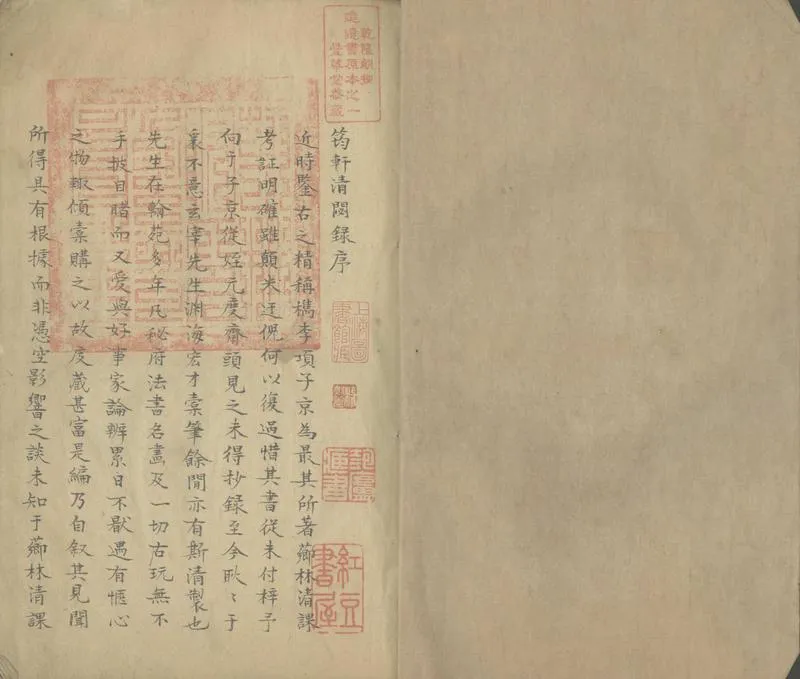 筠軒清閟錄序
近時鑒古之精稱檇李項子京為最其所著薌林清課
考証明確雖顛米迂倪何以復過惜其書從未付梓予
向于子京從姪元度齋頭見之未得抄錄至今耿〻于
裏不意玄宰先生淵海宏才橐筆餘閒亦有斯清製也
先生在翰苑多年凡秘府法書名畫及一切古玩無不
手披目睹而又愛與好事家論辨累日不厭遇有愜心
之物輙傾橐購之以故庋藏甚富是編乃自叙其見聞
所得具有根據而非憑空影響之談未知于薌林清課
上海圖
書館藏
紅豆
書屋